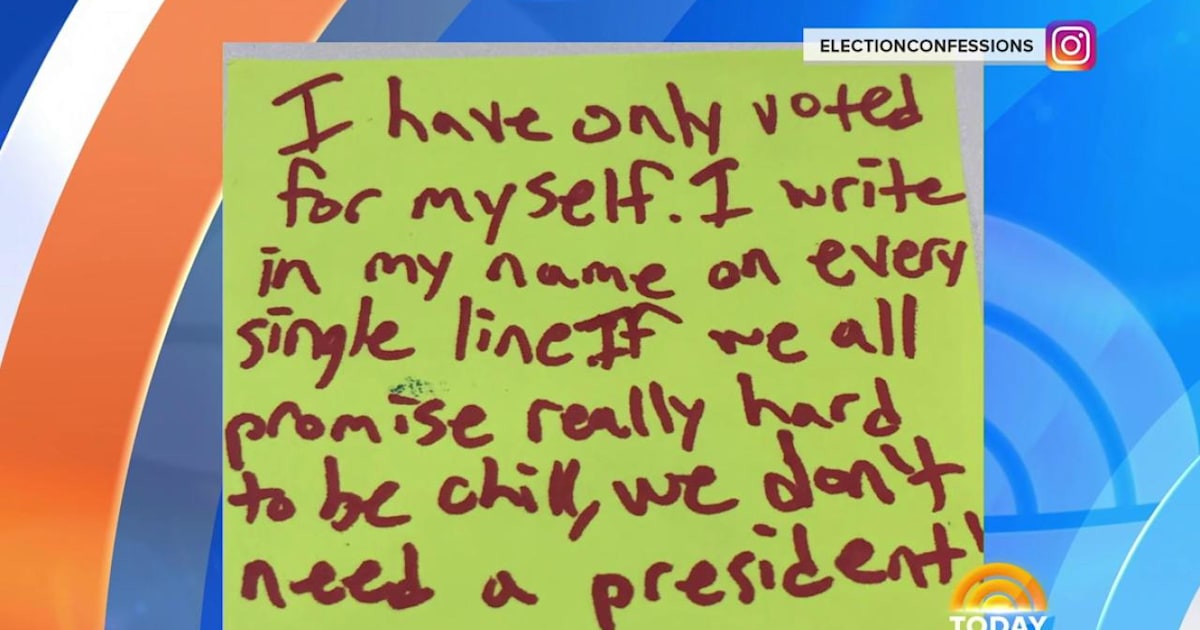 ELECTIONCONFESSIONS
I have only voted
for myself. I write
in my name on every
single line If we all
promise really hard
to be chill, we don't
need a president!
TODAY